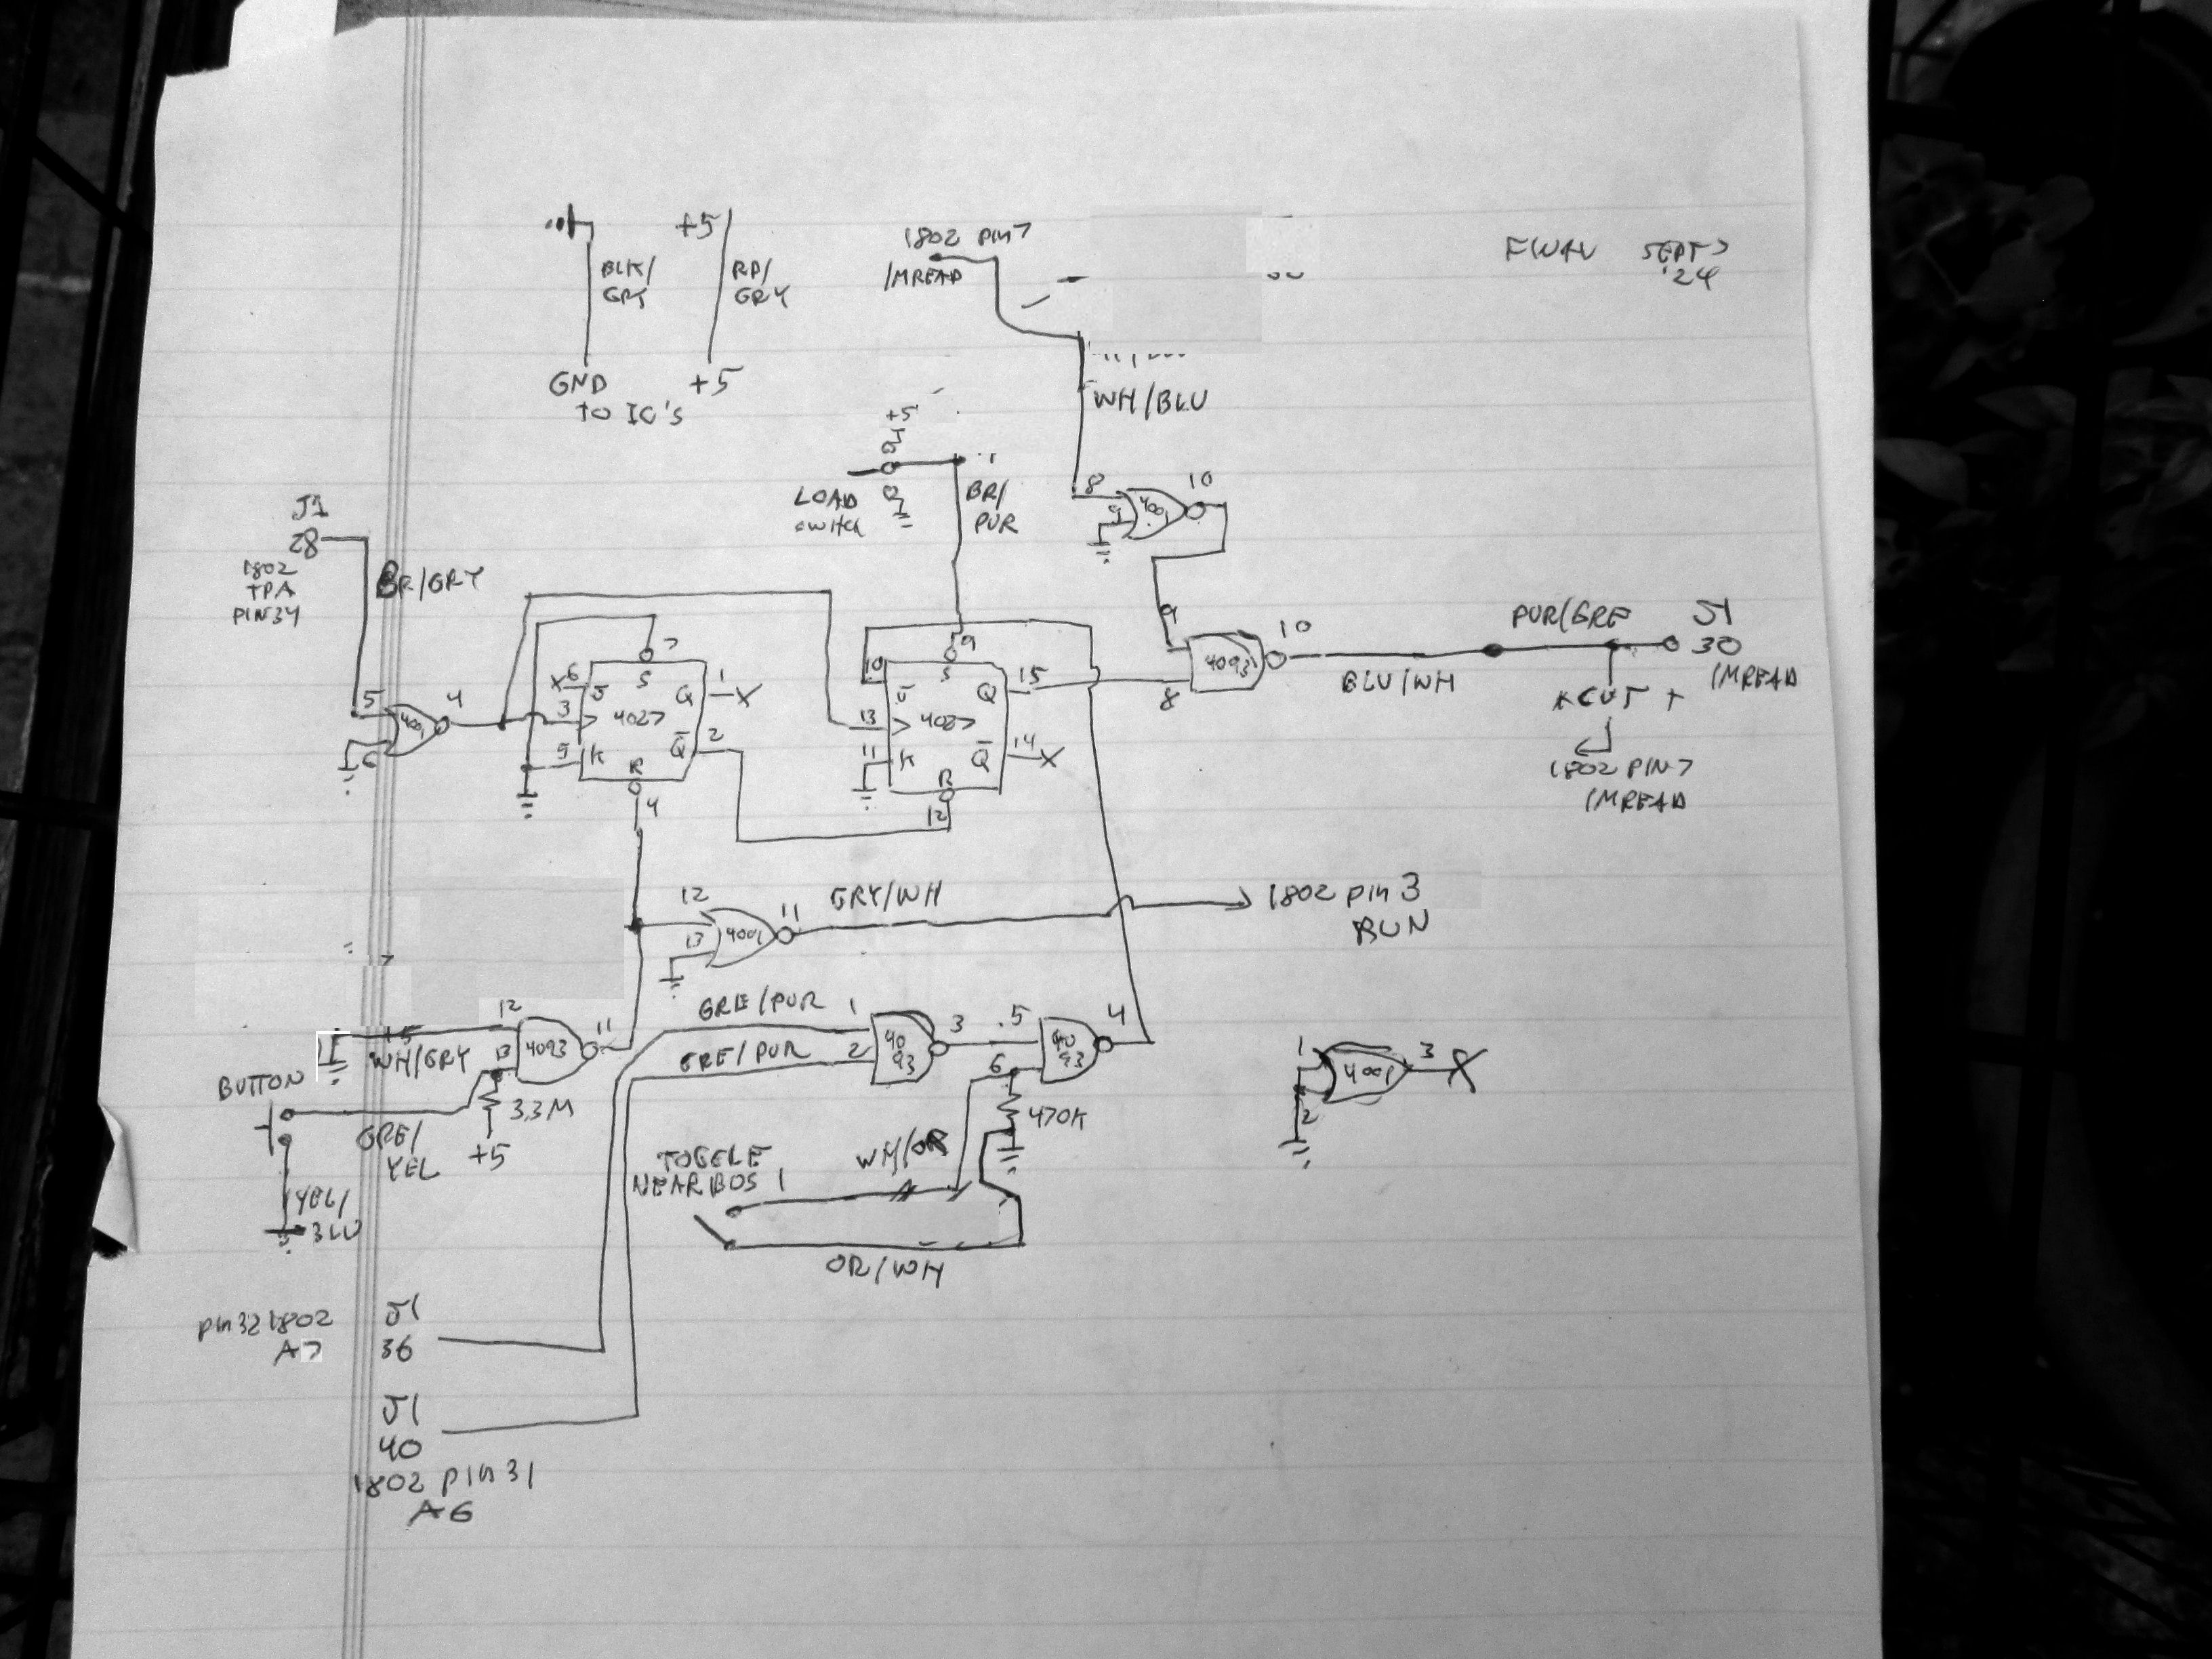 +5
1802 PIN 7
/MREAD
SEPT
'24
BLK/
GRY
RD/
GRY
GND
TO IC'S
+5
WH/BLU
+5
LOAD
switch
BR/
PUR
8
9
4001
10
J1
28
1802
TPA
PIN34
BR/GRY
5
6
4001
4
7
X 6
J
S
Q
1
X
3
4027
5
K
R
Q
2
4
9
10
J
S
Q
15
13
4027
11
K
R
Q
14
X
12
9
8
4093
10
BLU/WH
PUR/GRE
J1
30
/MREAD
X CUT
1802 PIN 7
/MREAD
12
13
4001
11
GRY/WH
1802 PIN 3
RUN
15
12
WH/GRY
13
4093
11
BUTTON
3.3M
+5
GRE/
YEL
YEL/
BLU
GRE/PUR
1
GRE/PUR
2
40
93
3
5
6
40
93
4
470K
TOGGLE
NEAR BOS 1
WH/OR
OR/WH
1
2
4001
3
X
PIN32 1802
A7
J1
36
J1
40
1802 PIN 31
A6